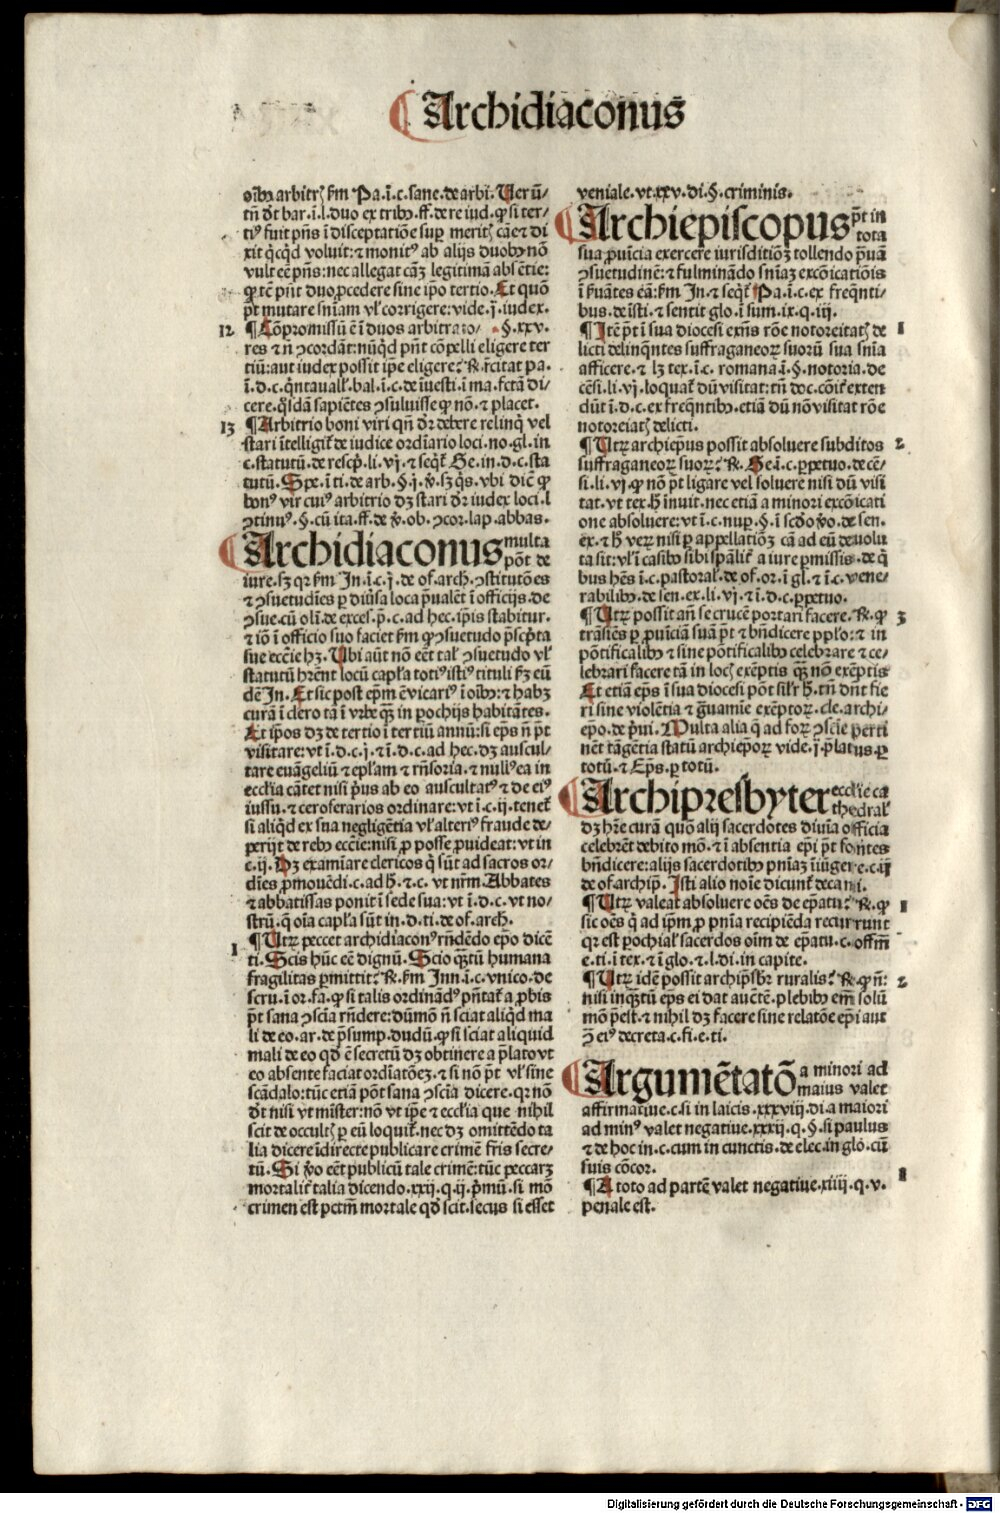 Archidiaconus
oību arbitrꝭ ẜm Pa.ī.c.sane.de arbi.Uerū/
tñ dt bar.ī.l.duo ex tribꝰ.ff.de re iud.ꝙ si ter/
tiꝰ fuit pñs ī disceptatiōe suꝑ meritꝭ cāe ⁊ di
xit qcqd voluit:⁊ monitꝰ ab alijs duobꝰ nō
vult eē pñs:nec allegat cāʒ legitimā absētie:
ꝙ tē pñt duo ꝓcedere sine ip̄o tertio.Et quō
pt mutare sñiam vl corrigere:vide.j.iudex.
12 ¶Cōpromissū ē ī duos arbitrato/ .§.xxv.
res ⁊ ñ ꝯcordāt:nūqd pñt cōpelli eligere ter
tiū:aut iudex possit ip̄e eligere:℞.ſcitat pa.
ī.d.c.qntauall.bal.ī.c.de īuesti.ī ma.fctā di/
cere.qsdā sapiētes ꝯsuluisse ꝙ nō.⁊ placet.
13 ¶Arbitrio boni viri qñ dr debere relinq vel
stari ītelligit de iudice ordiario loci.no.gl.in
c.statutū.de rescp.li.vj.⁊ seqt Ge.in.d.c.sta
tutū.Spe.ī ti.de arb.§.j.v.sʒ qs.vbi dic ꝙ
bonꝰ vir cuiꝰ arbitrio dʒ stari dr iudex loci.l
ꝯtinuꝰ.§.cū ita.ff.de v.ob.ꝯcor.lap.abbas.
Archidiaconus multa
pōt de
iure.sʒ qr ẜm In.ī.c.j.de of.arch.ꝯstitutōes
⁊ ꝯsuetudies ꝑ diūsa loca pualēt ī officijs.de
ꝯsue.cū oli.de exces.p.c.ad hec.ip̄is stabitur.
⁊ iō ī officio suo faciet ẜm ꝙ ꝯsuetudo pscpta
sue eccie hʒ.Ubi aūt nō eēt tal ꝯsuetudo vl
statutū hrēnt locū capla totiꝰ istiꝰ tituli ẜʒ eū
dē In.Et sic post ep̄m ē vicariꝰ ī oību:⁊ habʒ
curā ī clero tā ī vrbe qʒ in pochijs habitātes.
Et ip̄os dʒ de tertio ī tertiū annū:si ep̄s ñ pt
visitare:vt ī.d.c.j.⁊ ī.d.c.ad hec.dʒ auscul/
tare euāgeliū ⁊ eplam ⁊ rñsoria.⁊ nullꝰ ea in
ecclia cātet nisi pus ab eo auscultatꝰ ⁊ de eiꝰ
iussu.⁊ ceroferarios ordinare:vt ī.c.ij.tenet
si aliqd ex sua negligētia vl alteriꝰ fraude de/
perijt de rebꝰ eccie:nisi ꝓ posse ꝓuideat:vt in
c.ij.Hʒ examiare clericos q sūt ad sacros or/
dies ꝓmouēdi.c.ad h.⁊ c.vt nrm.Abbates
⁊ abbatissas ponit ī sede sua:vt ī.d.c.vt no/
strū.q oia capla sūt in.d.ti.de of.arch.
1 ¶Utrʒ peccet archidiaconꝰ rñdēdo ep̄o dicē
ti.Scis hūc eē dignū.Scio qʒtū humana
fragilitas ꝑmittit:℞.ẜm Inn.ī.c.vnico.de
scru.ī or.fa.ꝙ si talis ordinādꝰ pñtat a ꝓbis
pt sana ꝯscia rñdere:dūmō ñ sciat aliqd ma
li de eo.ar.de psump.dudū.ꝙ si sciat aliquid
mali de eo qd ē secretū dʒ obtinere a plato vt
eo absente faciat ordiatōeʒ.⁊ si nō pt vl sine
scādalo:tūc etiā pōt sana ꝯscia dicere.qr nō
dt nisi vt mister:nō vt ip̄e ⁊ ecclia que nihil
scit de occultꝭ ꝑ eū loquit.nec dʒ omittēdo ta
lia dicere īdirecte publicare crimē fris secre/
tū.Si vo eēt publicū tale crimē:tūc peccarʒ
mortalit talia dicendo.xxij.q.ij.pmū.si mō
crimen est petm mortale qd scit.secus si esset
veniale.vt.xxv.di.§.criminis.
Archiepiscopus pt in
tota
sua ꝓuicia exercere iurisditiōʒ tollendo puā
ꝯsuetudinē:⁊ fulminādo sñiaʒ excōicatiōis
ī ẜuātes eā:ẜm In.⁊ seqt Pa.ī.c.ex freqnti/
bus.de īsti.⁊ sentit glo.ī sum.ix.q.iij.
¶Itē pt ī sua diocesi exñs rōe notoreitatꝭ de 1
licti delinqntes suffraganeoꝝ suorū sua sñia
afficere.⁊ lʒ tex.ī.c.romana ī.§.notoria.de
cēsi.li.vj.loquat dū visitat:tñ doc.cōit exten
dūt ī.d.c.ex freqntibꝰ.etiā dū nō visitat rōe
notoreiatꝭ delicti.
¶Utrʒ archiep̄us possit absoluere subditos 2
suffraganeoꝝ suoꝝ:℞.Ge ī.c.ꝑpetuo.de cē/
si.li.vj.ꝙ nō pt ligare vel soluere nisi dū visi
tat.vt tex.h īnuit.nec etiā a minori excōicati
one absoluere:vt ī.c.nuꝑ.§.ī scdo vo.de sen.
ex.⁊ h veꝝ nisi ꝑ appellatiōʒ cā ad eū deuolu
ta sit:vl ī casibꝰ sibi spālit a iure ꝑmissis.de q
bus hēs ī.c.pastoral.de of.or.ī gl.⁊ ī.c.vene/
rabilibꝰ.de sen.ex.li.vj.⁊ ī.d.c.ꝑpetuo.
¶Utrʒ possit an se crucē portari facere.℞.ꝙ 3
trāsiēs ꝑ ꝓuiciā suā pt ⁊ bñdicere pplo:⁊ in
pōtificalibꝰ ⁊ sine pōtificalibꝰ celebrare ⁊ ce/
lebrari facere tā in locꝭ exēptis qʒ nō exēptis
Et etiā ep̄s ī sua diocesi pōt silr h.tñ dñt fie
ri sine violētia ⁊ guamie exēptoꝝ.cle.archi/
epo.de pui.Multa alia q ad foꝝ ꝯscie perti
nēt tāgētia statū archiep̄oꝝ vide.j.platus.ꝑ
totū.⁊ Ep̄s.ꝑ totū.
Archipresbyter ecclie ca
thedral
dʒ hre curā quō alij sacerdotes diuia officia
celebrēt debito mō.⁊ ī absentia ep̄i pt fontes
bñdicere:alijs sacerdotibꝰ pniaʒ īiūgere.c.ij
de of archip.Isti alio noie dicunt decani.
¶Utrʒ valeat absoluere oēs de ep̄atu:℞.ꝙ 1
sic oēs q ad ip̄m ꝓ pnia recipiēda recurrunt
qr est pochial sacerdos oim de ep̄atu.c.offm
e.ti.ī tex.⁊ ī glo.⁊ l.di.in capite.
¶Utrʒ idē possit archipsbr ruralis:℞.ꝙ ñ: 2
nisi inqʒtū ep̄s ei dat auctē.plebibꝰ em̄ solū
mō pest.⁊ nihil dʒ facere sine relatōe ep̄i aut
ꝯ eiꝰ decreta.c.fi.e.ti.
Argumētatō a minori ad
maius valet
affirmatiue.c.si in laicis.xxxviij.di.a maiori
ad minꝰ valet negatiue.xxxij.q.§.si paulus
⁊ de hoc in.c.cum in cunctis.de elec.in glo.cū
suis cōcor.
¶A toto ad partē valet negatiue.xiiij.q.v. 1
penale est.
Digitalisierung gefördert durch die Deutsche Forschungsgemeinschaft - DFG